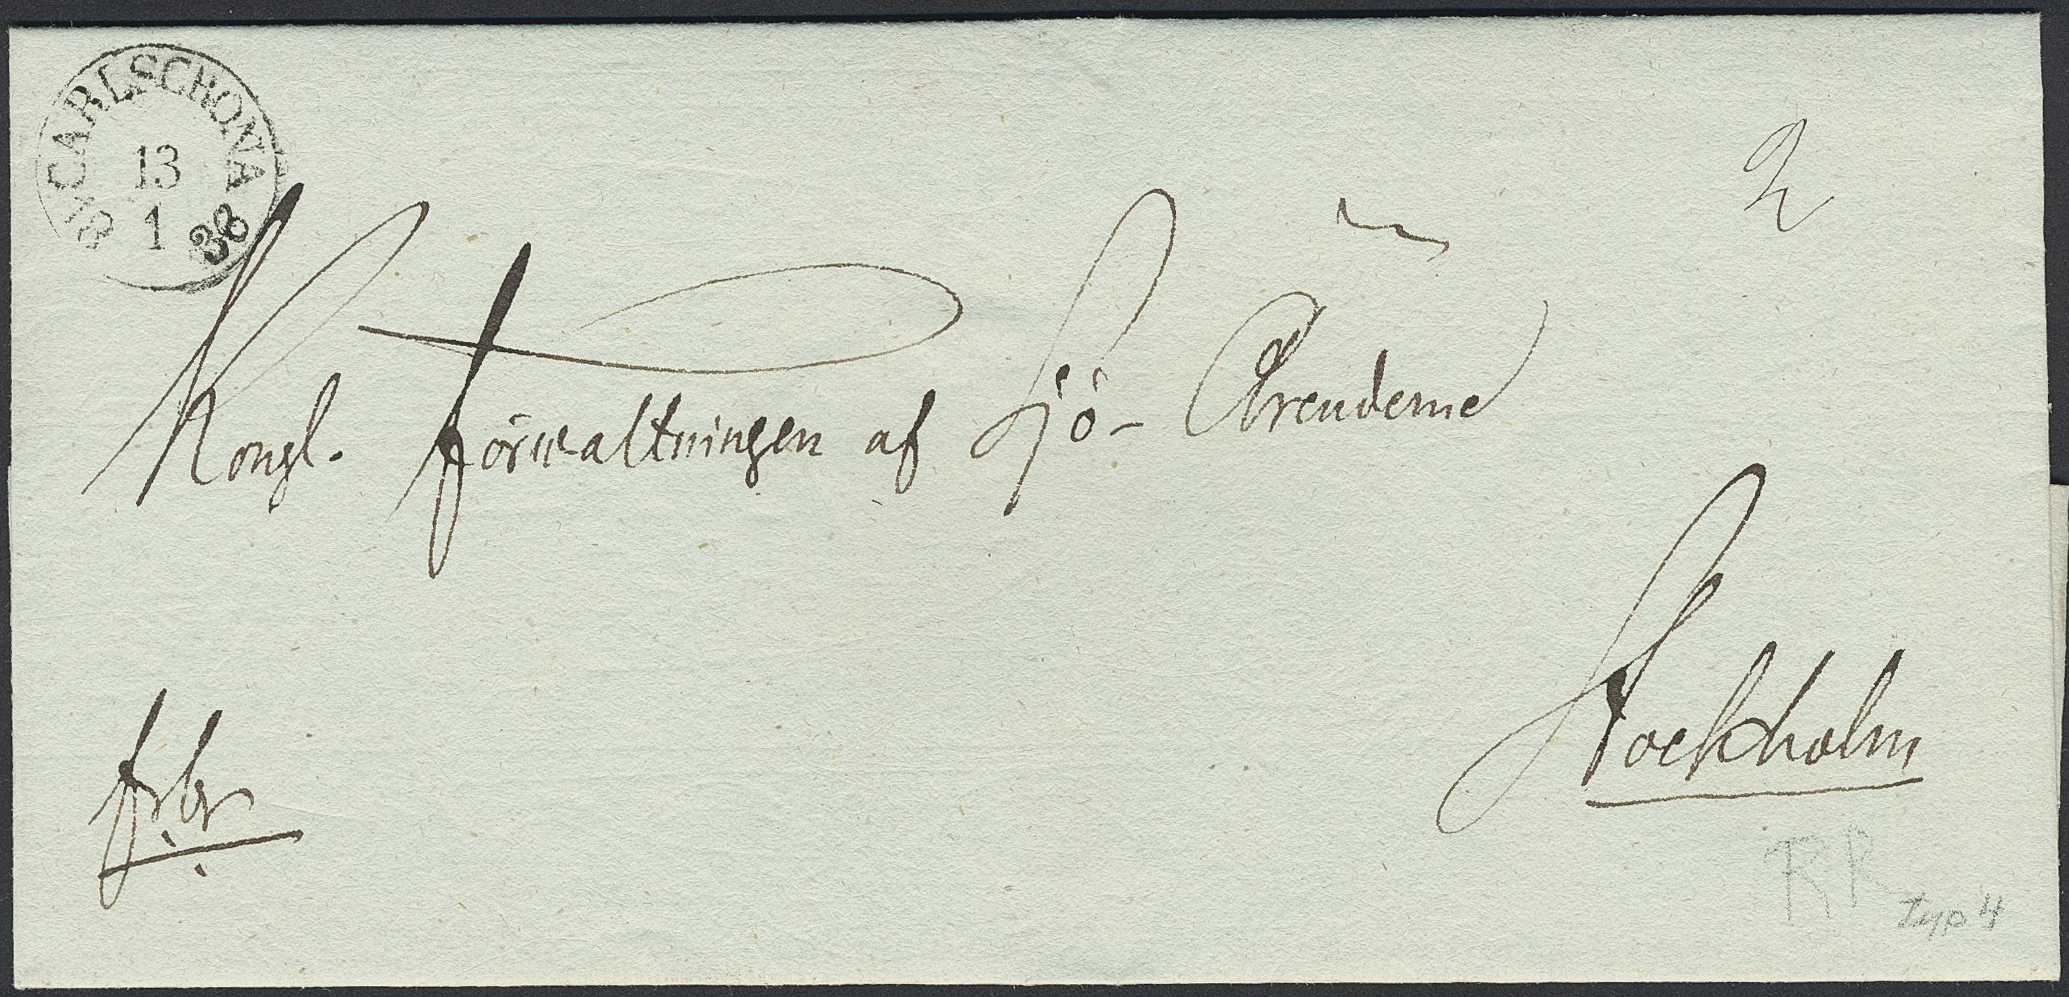 CARLSCRONA
13
1
18 38
2
Kongl. Förwaltningen af Sjö-Ärenderne
Stockholm
frbr
RR
typ 4